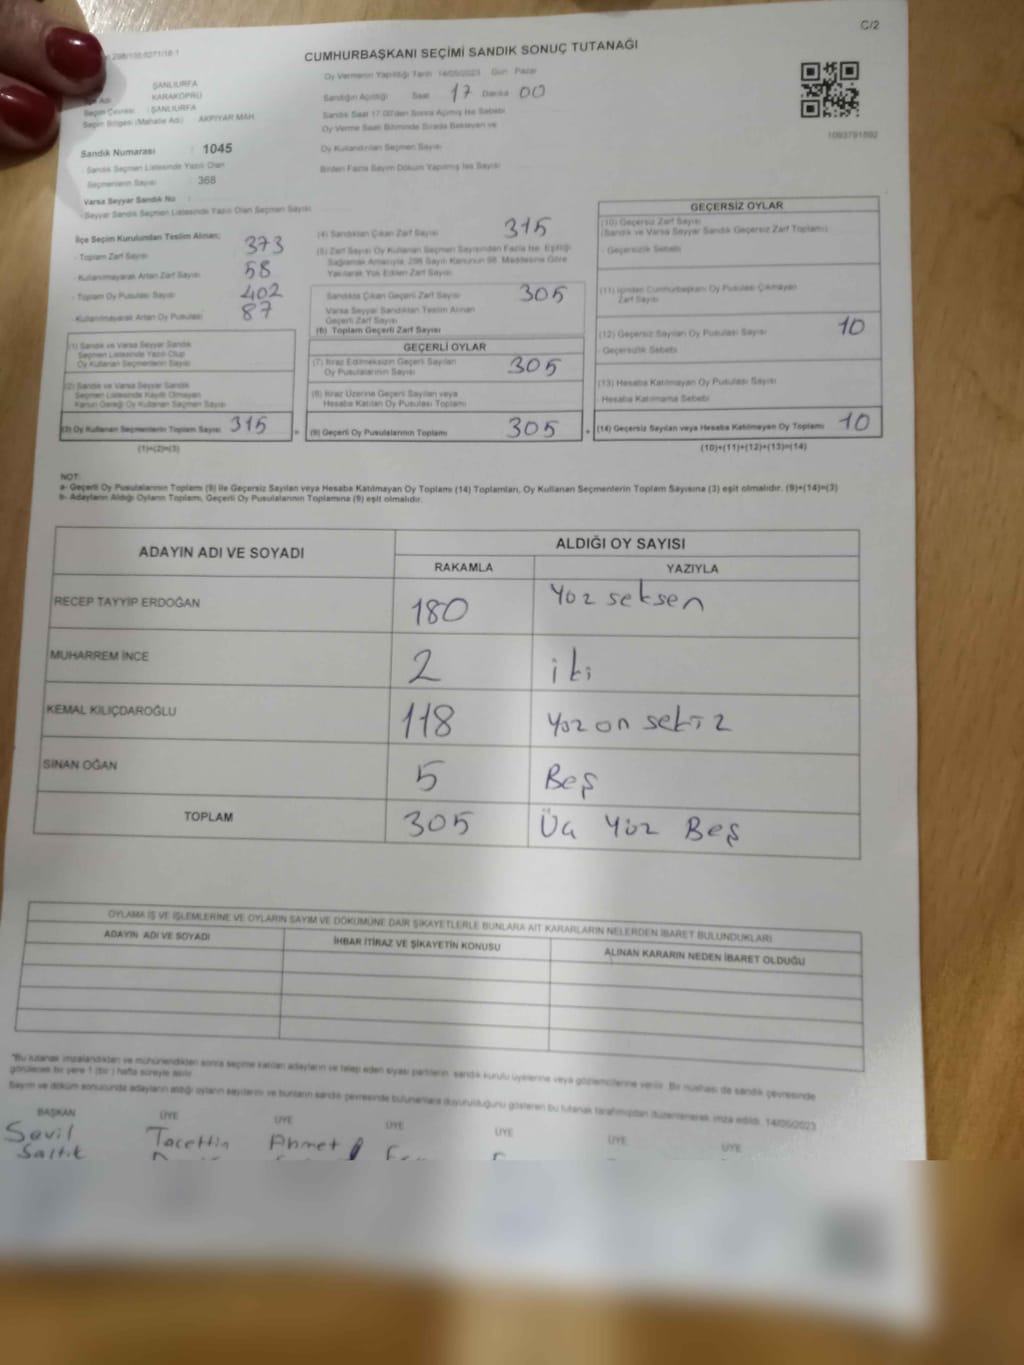 C/2
CUMHURBAŞKANI SEÇİMİ SANDIK SONUÇ TUTANAĞI
Oy Vermenin Yapıldığı Tarih 14/05/2023 Gün Pazar
ŞANLIURFA
KARAKÖPRÜ
Sandığın Açıldığı Saat 17 Dakika 00
Seçim Çevresi : ŞANLIURFA
Seçim Bölgesi (Mahalle Adı) : AKPIYAR MAH
Sandık Saat 17.00'den Sonra Açılmış İse Sebebi
Oy Verme Saati Bitiminde Sırada Bekleyen ve
Oy Kullandırılan Seçmen Sayısı
1093791892
Sandık Numarası : 1045
Sandık Seçmen Listesinde Yazılı Olan
Seçmenlerin Sayısı : 368
Birden Fazla Sayım Döküm Yapılmış İse Sayısı
Varsa Seyyar Sandık No
Seyyar Sandık Seçmen Listesinde Yazılı Olan Seçmen Sayısı
İlçe Seçim Kurulundan Teslim Alınan;
- Toplam Zarf Sayısı 373
- Kullanılmayarak Artan Zarf Sayısı 58
- Toplam Oy Pusulası Sayısı 402
- Kullanılmayarak Artan Oy Pusulası 87
(1) Sandık ve Varsa Seyyar Sandık
Seçmen Listesinde Yazılı Olup
Oy Kullanan Seçmenlerin Sayısı
(2) Sandık ve Varsa Seyyar Sandık
Seçmen Listesinde Kayıtlı Olmayan
Kanun Gereği Oy Kullanan Seçmen Sayısı
(3) Oy Kullanan Seçmenlerin Toplam Sayısı 315
(1)+(2)=(3)
(4) Sandıktan Çıkan Zarf Sayısı 315
(5) Zarf Sayısı Oy Kullanan Seçmen Sayısından Fazla İse, Eşitliği
Sağlamak Amacıyla, 298 Sayılı Kanunun 98. Maddesine Göre
Yakılarak Yok Edilen Zarf Sayısı
Sandıkta Çıkan Geçerli Zarf Sayısı 305
Varsa Seyyar Sandıktan Teslim Alınan
Geçerli Zarf Sayısı
(6) Toplam Geçerli Zarf Sayısı
GEÇERLİ OYLAR
(7) İtiraz Edilmeksizin Geçerli Sayılan
Oy Pusulalarının Sayısı 305
(8) İtiraz Üzerine Geçerli Sayılan veya
Hesaba Katılan Oy Pusulası Toplamı
= (9) Geçerli Oy Pusulalarının Toplamı 305
GEÇERSİZ OYLAR
(10) Geçersiz Zarf Sayısı
(Sandık ve Varsa Seyyar Sandık Geçersiz Zarf Toplamı)
Geçersizlik Sebebi
(11) İçinden Cumhurbaşkanı Oy Pusulası Çıkmayan
Zarf Sayısı
(12) Geçersiz Sayılan Oy Pusulası Sayısı 10
Geçersizlik Sebebi
(13) Hesaba Katılmayan Oy Pusulası Sayısı
Hesaba Katılmama Sebebi
+ (14) Geçersiz Sayılan veya Hesaba Katılmayan Oy Toplamı 10
(10)+(11)+(12)+(13)=(14)
NOT:
a- Geçerli Oy Pusulalarının Toplamı (9) ile Geçersiz Sayılan veya Hesaba Katılmayan Oy Toplamı (14) Toplamları, Oy Kullanan Seçmenlerin Toplam Sayısına (3) eşit olmalıdır. (9)+(14)=(3)
b- Adayların Aldığı Oyların Toplamı, Geçerli Oy Pusulalarının Toplamına (9) eşit olmalıdır.
ADAYIN ADI VE SOYADI ALDIĞI OY SAYISI
RAKAMLA YAZIYLA
RECEP TAYYİP ERDOĞAN 180 Yüz seksen
MUHARREM İNCE 2 iki
KEMAL KILIÇDAROĞLU 118 Yüz on sekiz
SİNAN OĞAN 5 Beş
TOPLAM 305 Üç Yüz Beş
OYLAMA İŞ VE İŞLEMLERİNE VE OYLARIN SAYIM VE DÖKÜMÜNE DAİR ŞİKAYETLERLE BUNLARA AİT KARARLARIN NELERDEN İBARET BULUNDUKLARI
ADAYIN ADI VE SOYADI İHBAR İTİRAZ VE ŞİKAYETİN KONUSU ALINAN KARARIN NEDEN İBARET OLDUĞU
"Bu tutanak imzalandıktan ve mühürlendikten sonra seçime katılan adayların ve talep eden siyasi partilerin sandık kurulu üyelerine veya gözlemcilerine verilir. Bir nüshası da sandık çevresinde
görülecek bir yere 1 (bir) hafta süreyle asılır.
Sayım ve döküm sonucunda adayların aldığı oyların sayılarını ve bunların sandık çevresinde bulunanlara duyurulduğunu gösteren bu tutanak tarafımızdan düzenlenerek imza edildi. 14/05/2023
BAŞKAN ÜYE ÜYE ÜYE ÜYE ÜYE ÜYE
Sevil Tacettin Ahmet
Saltık